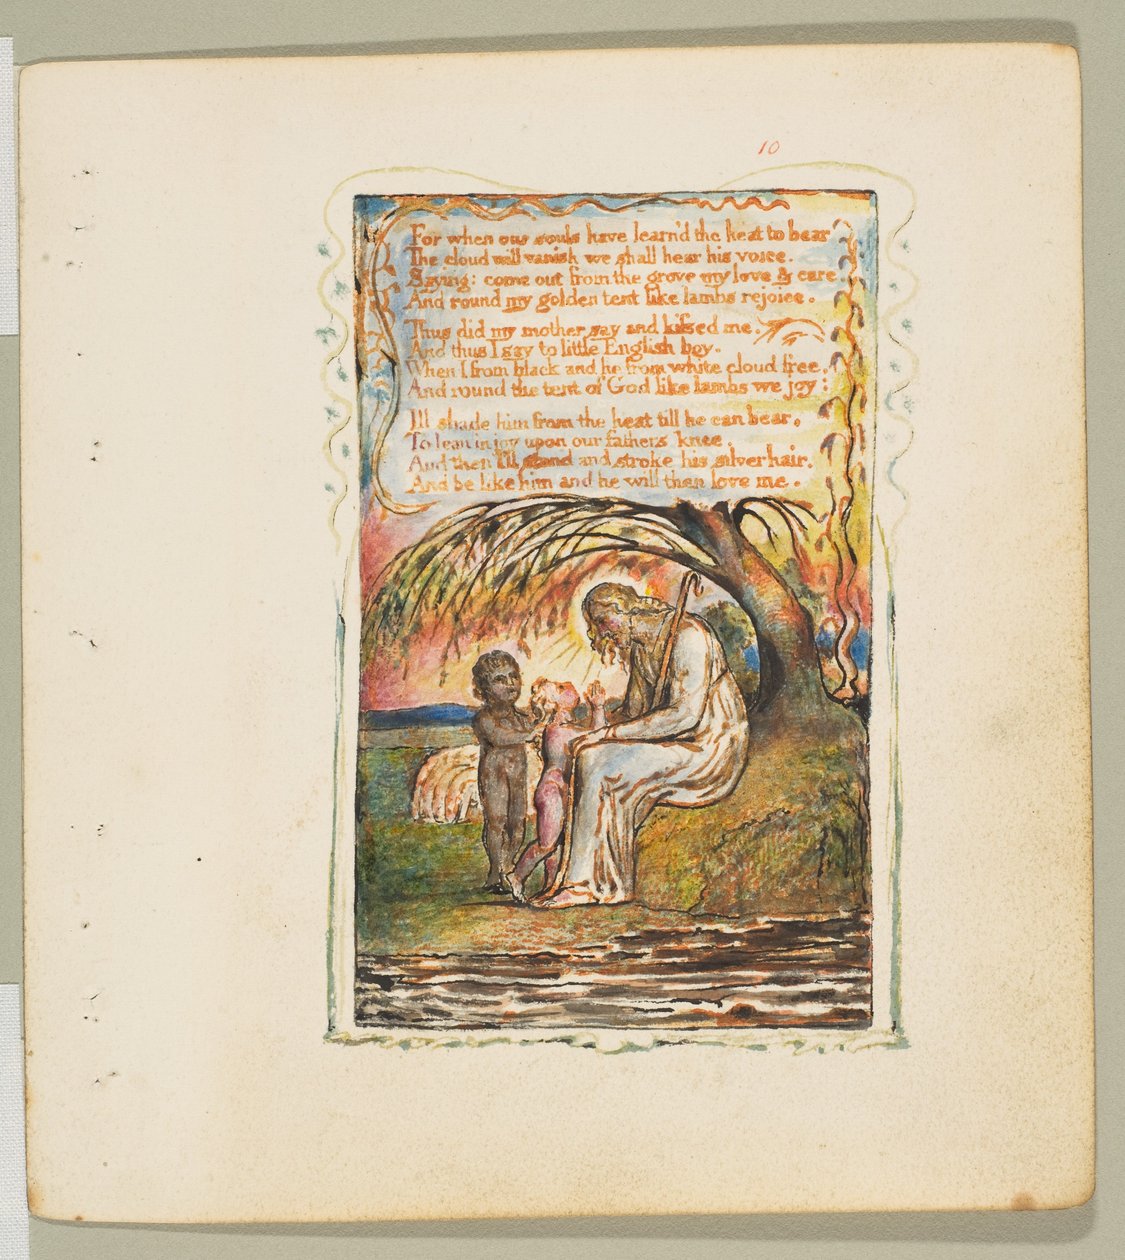 10
For when our souls have learn'd the heat to bear
The cloud will vanish we shall hear his voice.
Saying: come out from the grove my love & care.
And round my golden tent like lambs rejoice.
Thus did my mother say and kissed me.
And thus I say to little English boy.
When I from black and he from white cloud free,
And round the tent of God like lambs we joy:
Ill shade him from the heat till he can bear,
To lean in joy upon our fathers knee.
And then I'll stand and stroke his silver hair.
And be like him and he will then love me.